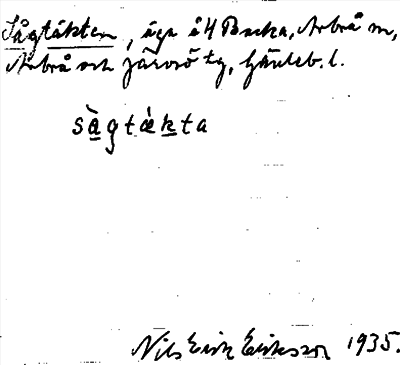 Sågtäkten, äga åt Backa, Arbrå sn,
Arbrå och Järvsö tg, Gävleb. l.
sàgtǽkta
Nils Erik Eriksson 1935.